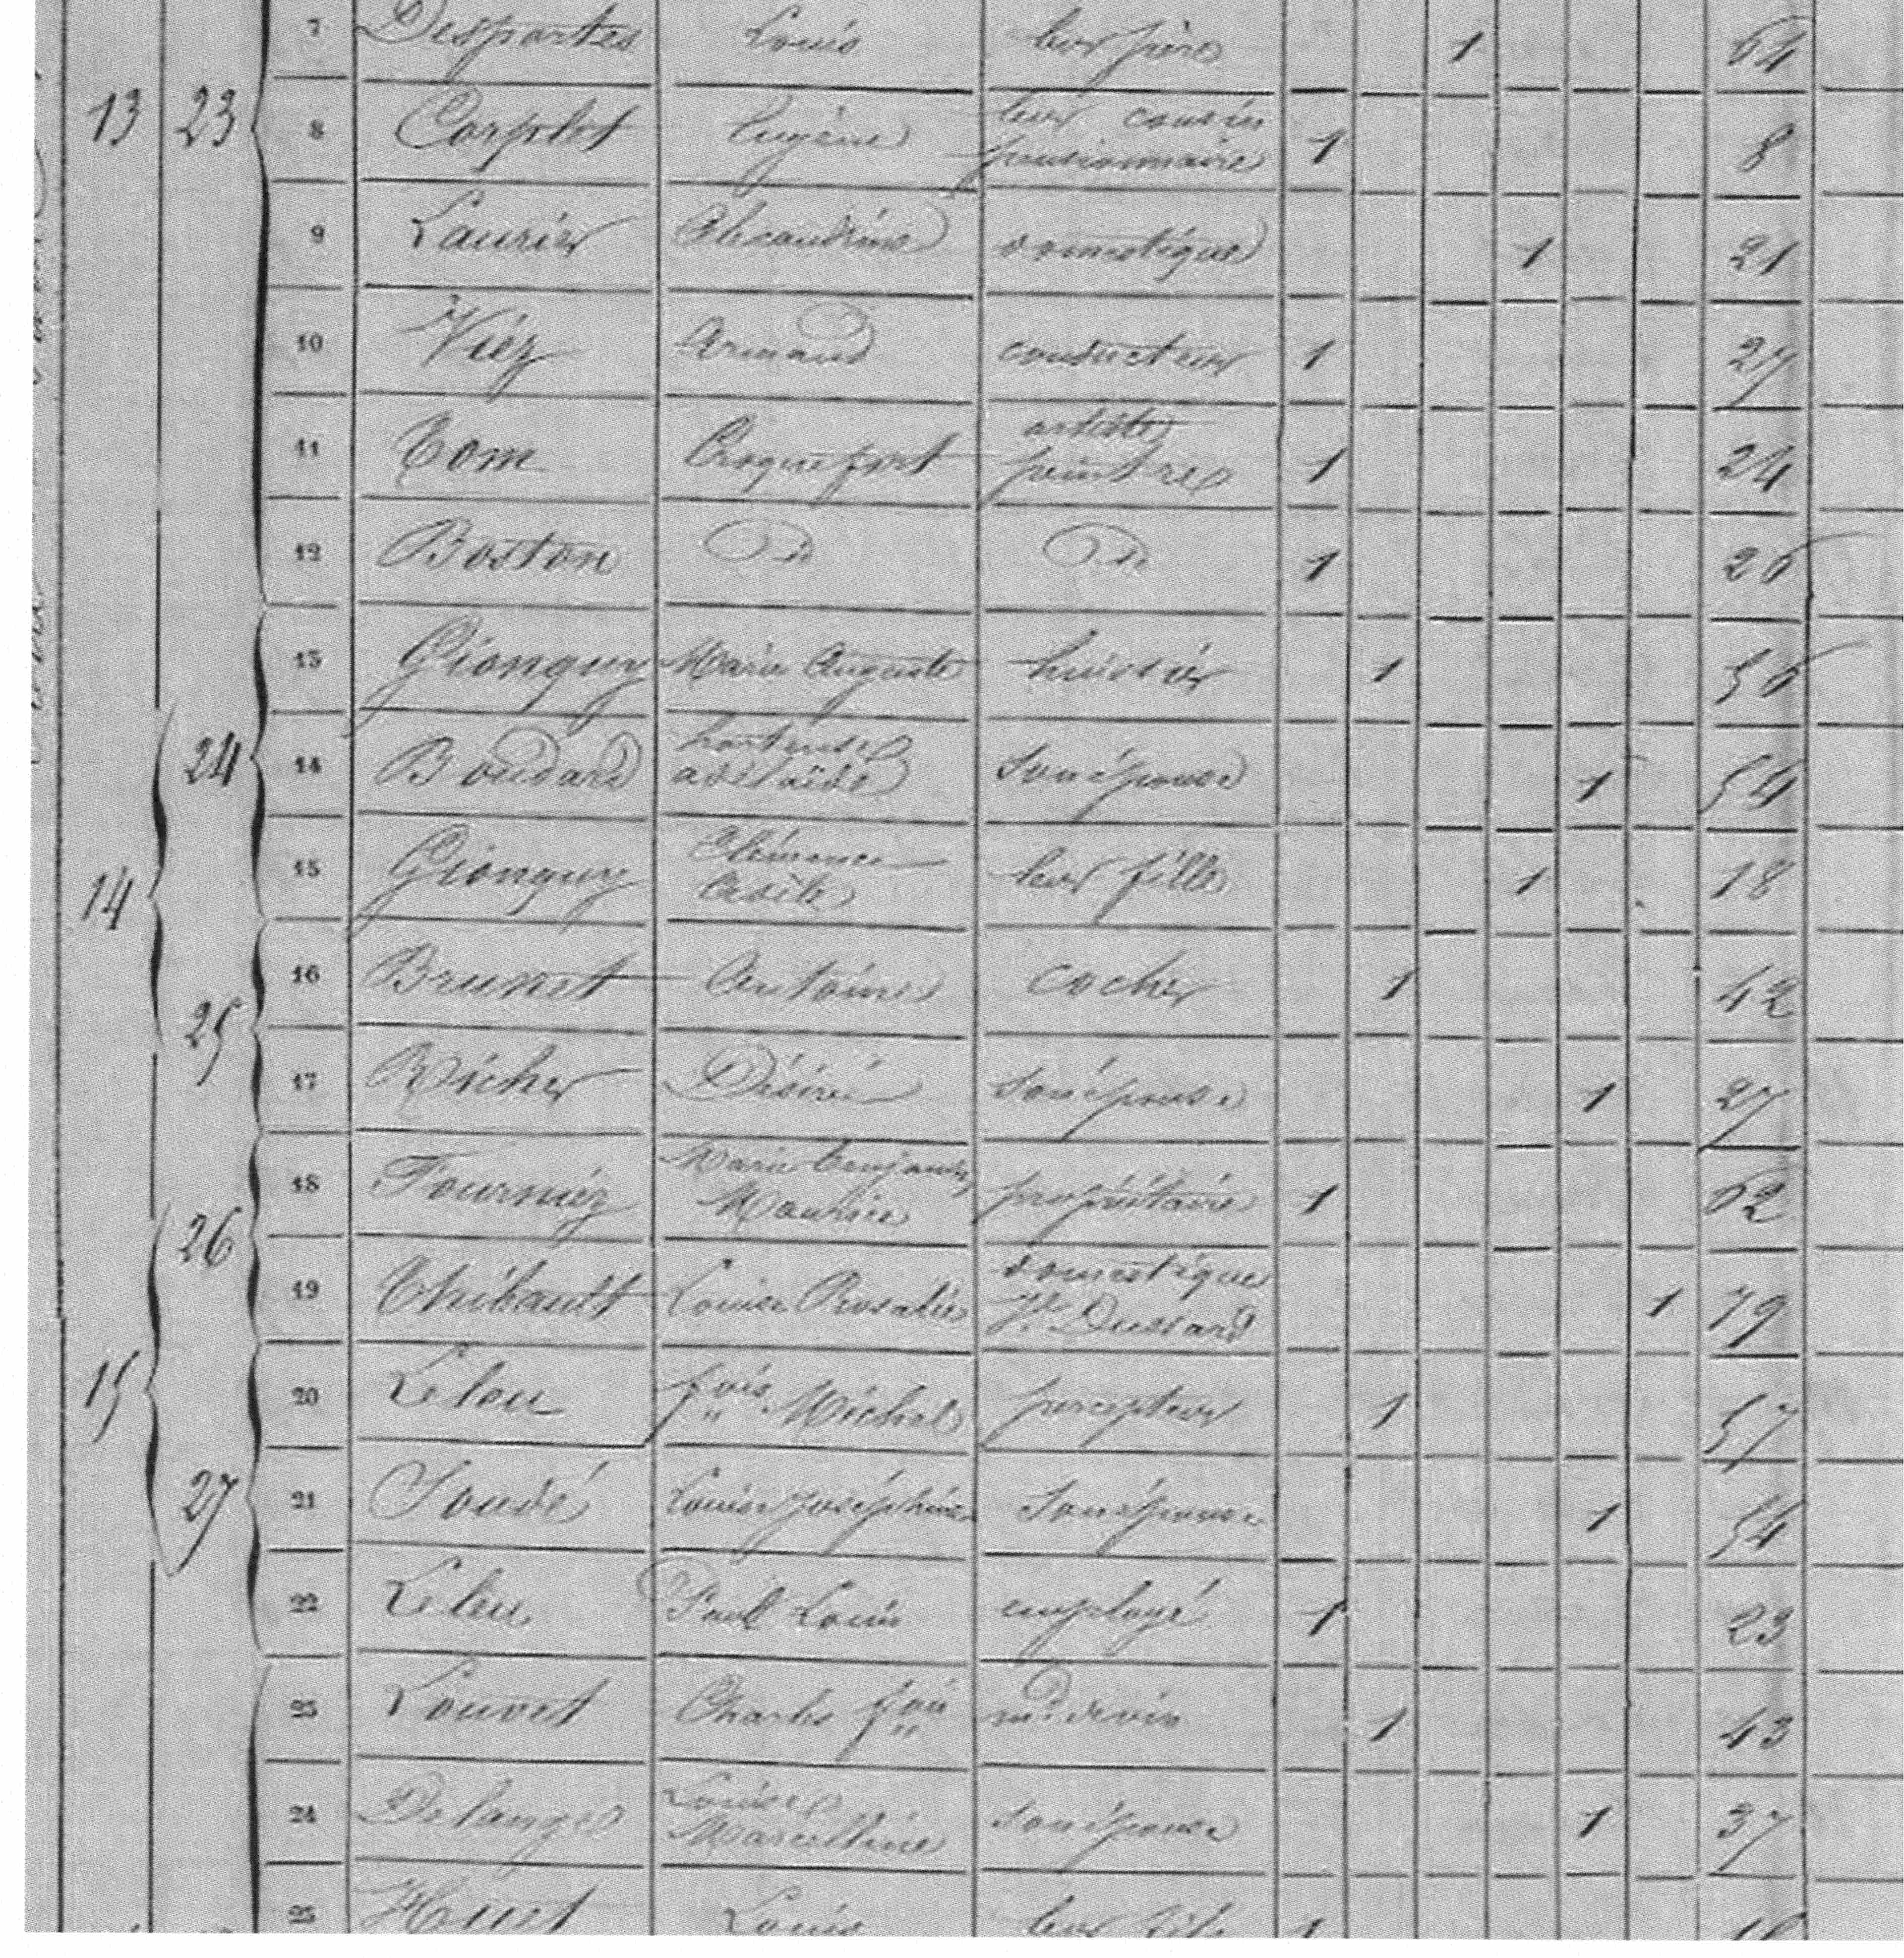 7 Desportes Louis leur père 1 64
13 23 8 Carplet Eugène leur cousin pensionnaire 1 8
9 Laurier Alexandrine domestique 1 21
10 Viez Armand conducteur 1 27
11 Tom Croquefort artiste peintre 1 24
12 Boston Id Id 1 26
13 Gionguy Marie Auguste huissier 1 56
24 14 Boudard hortense adélaïde son épouse 1 54
14 15 Gionguy Clémence leur fille 1 18
16 Brunet Antoine cocher 1 42
25 17 Richer Désiré son épouse 1 27
18 Fournier Marie Benjamin Maurice propriétaire 1 62
26 19 Thibault Louise Rosalie domestique Ve Dussard 1 79
15 20 Leleu fois Michel percepteur 1 57
27 21 Soudé Louise Joséphine son épouse 1 54
22 Leleu Paul Louis employé 1 23
23 Louvet Charles fois md de vin 1 43
24 Delange Louise Marcelline son épouse 1 37
25 Huet Louis leur fils 1